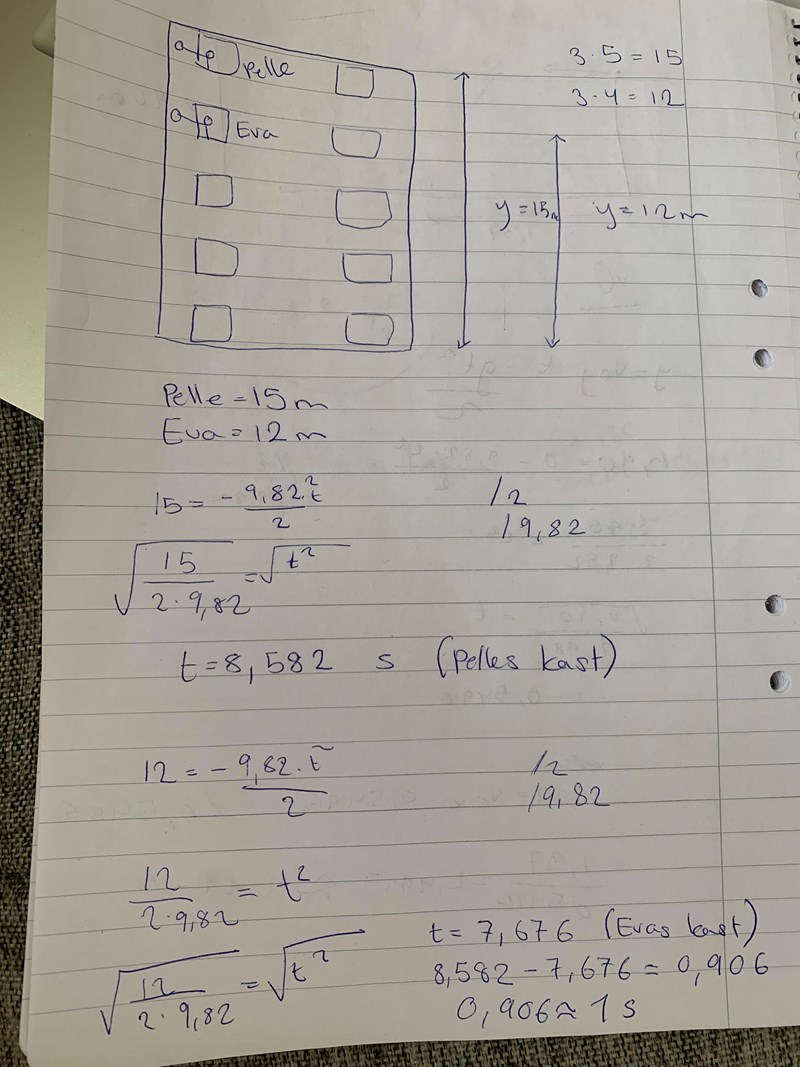 3·5=15
3·4=12
Pelle
Eva
y=15m
y=12m
Pelle=15m
Eva=12m
15=-9,82·t²/2
/2
/9,82
√15/2·9,82=√t²
t=8,582 s (Pelles kast)
12=-9,82·t²/2
/2
/9,82
12/2·9,82=t²
√12/2·9,82=√t²
t=7,676 (Evas kast)
8,582-7,676=0,906
0,906≈1s